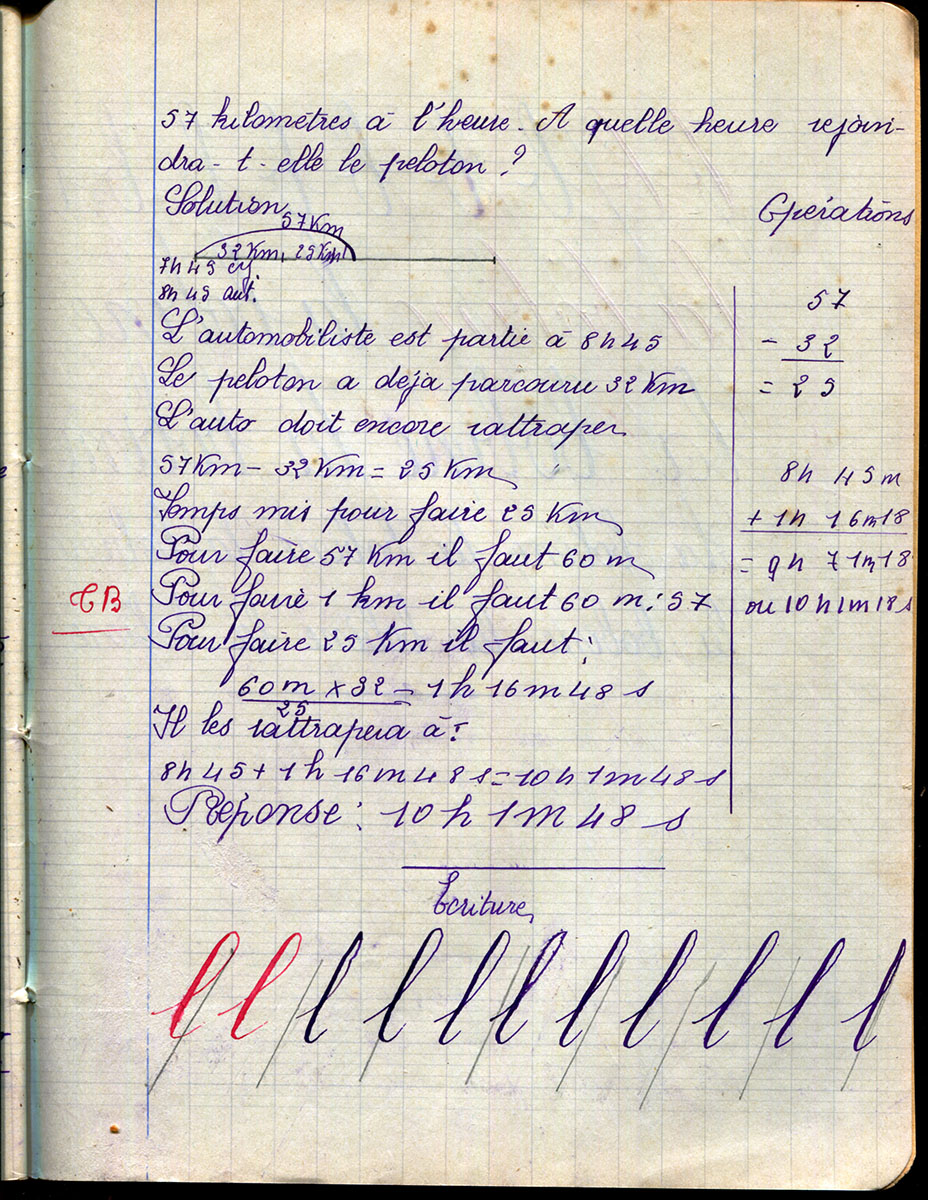 57 kilomètres à l'heure. A quelle heure rejoin-
dra-t-elle le peloton ?
Solution
Opérations
57Km
32Km, 25Km
7h45 cy.
8h45 aut.
L'automobiliste est partie à 8h45
Le peloton a déja parcouru 32Km
L'auto doit encore rattraper
57Km - 32Km = 25Km
Temps mis pour faire 25 Km
Pour faire 57 Km il faut 60 m
Pour faire 1 km il faut 60 m : 57
Pour faire 25 Km il faut :
60m x 32 = 1h 16m 48 s
25
Il les rattrapera à :
8h 45 + 1h 16m 48 s = 10h 1m 48 s
Réponse : 10 h 1m 48 s
57
- 32
= 25
8h 45m
+ 1h 16m18
= 9h 71m18
ou 10h1m18s
TB
Ecriture
l l l l l l l l l l l